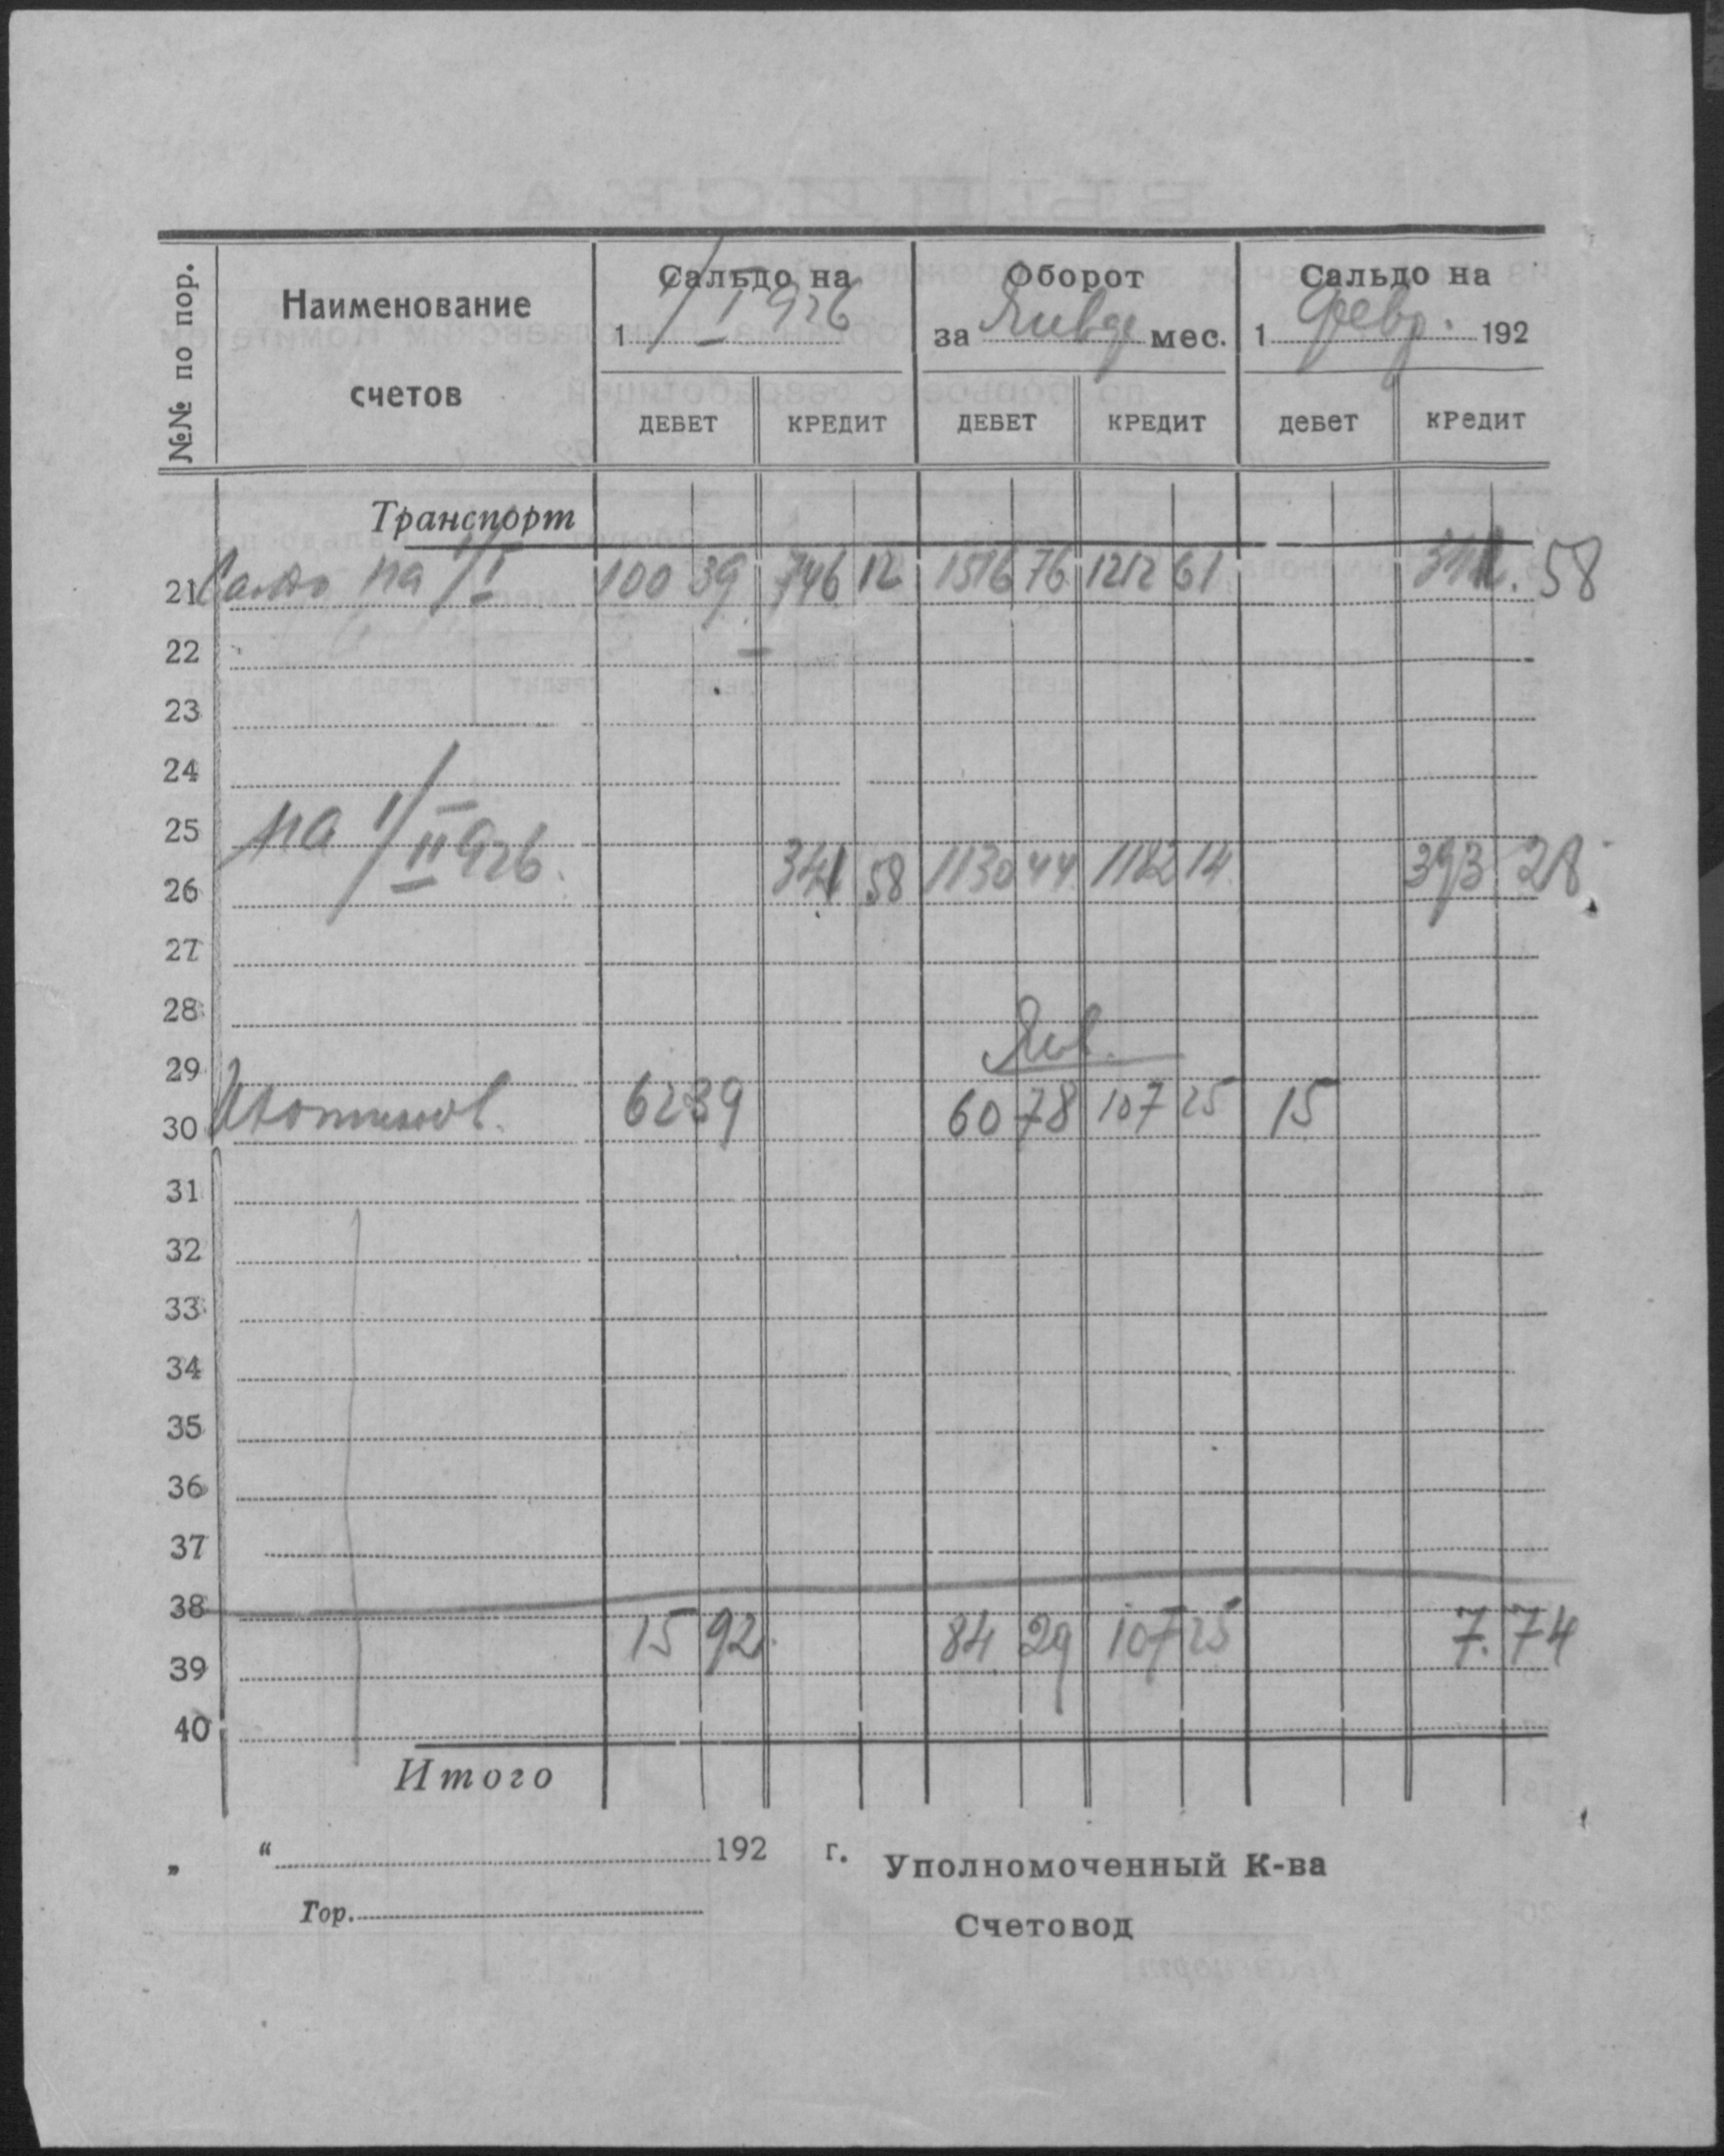 №№ по пор.
Наименование счетов
Сальдо на
1 1/I 926
Оборот
за Январь мес.
Сальдо на
1 февр. 192
ДЕБЕТ КРЕДИТ ДЕБЕТ КРЕДИТ дебет кредит
Транспорт
21 Сальдо на 1/I 100 39 746 12 1516 76 1212 61 341. 58
22
23
24
25 на 1/II 926.
26 341 58 1130 44 1182 14 393 28
27
28
29 Янв.
30 62 39 60 78 107 25 15
31
32
33
34
35
36
37
38
39 15 92 84 29 107 25 7. 74
40
Итого
„ “ 192 г. Уполномоченный К-ва
Гор.
Счетовод